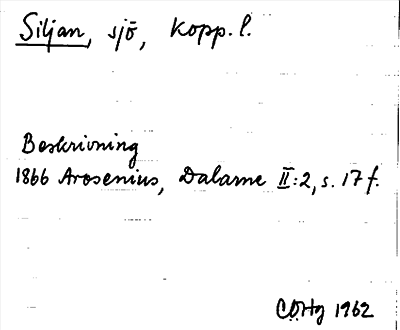 Siljan, sjö, Kopp. l.
Beskrivning
1866 Arosenius, Dalarne II:2, s. 17 f.
CÖHg 1962